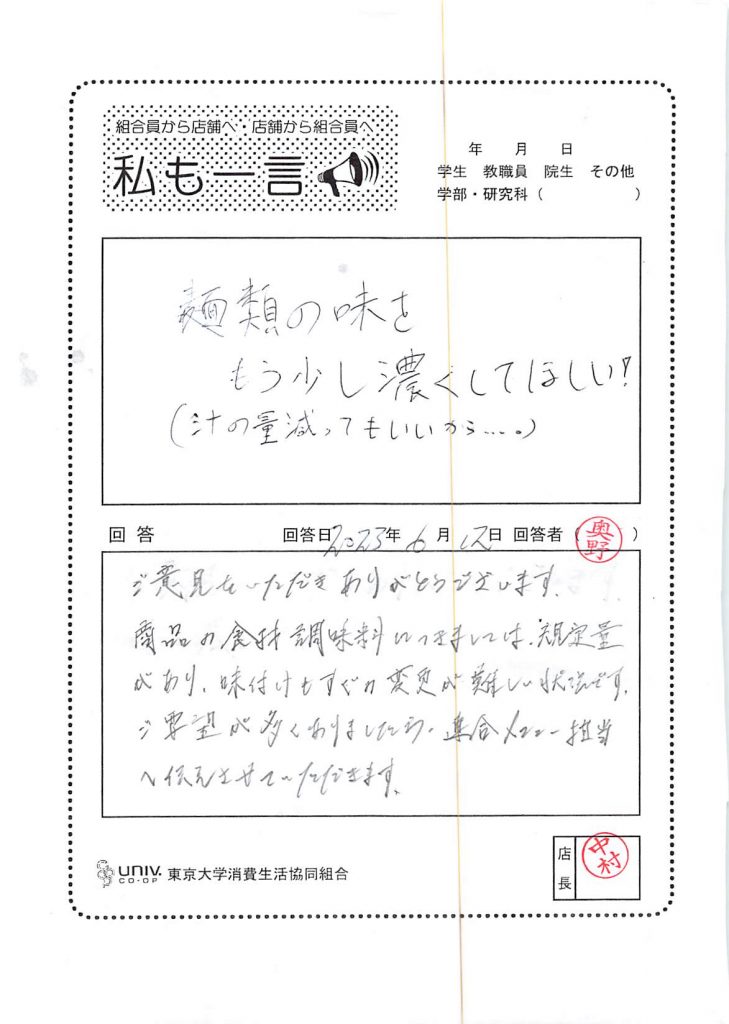 組合員から店舗へ・店舗から組合員へ
私も一言
年 月 日
学生 教職員 院生 その他
学部・研究科( )
麺類の味を
もう少し濃くしてほしい!
(汁の量減ってもいいから……。)
回答 回答日2023年6月12日 回答者(奥野)
ご意見をいただきありがとうございます。
商品の食材調味料につきましては、規定量
があり、味付けもすぐの変更が難しい状況です。
ご要望が多くありましたら、集合メニュー担当
へ伝えさせていただきます。
店長 中村
UNIV. CO-OP 東京大学消費生活協同組合